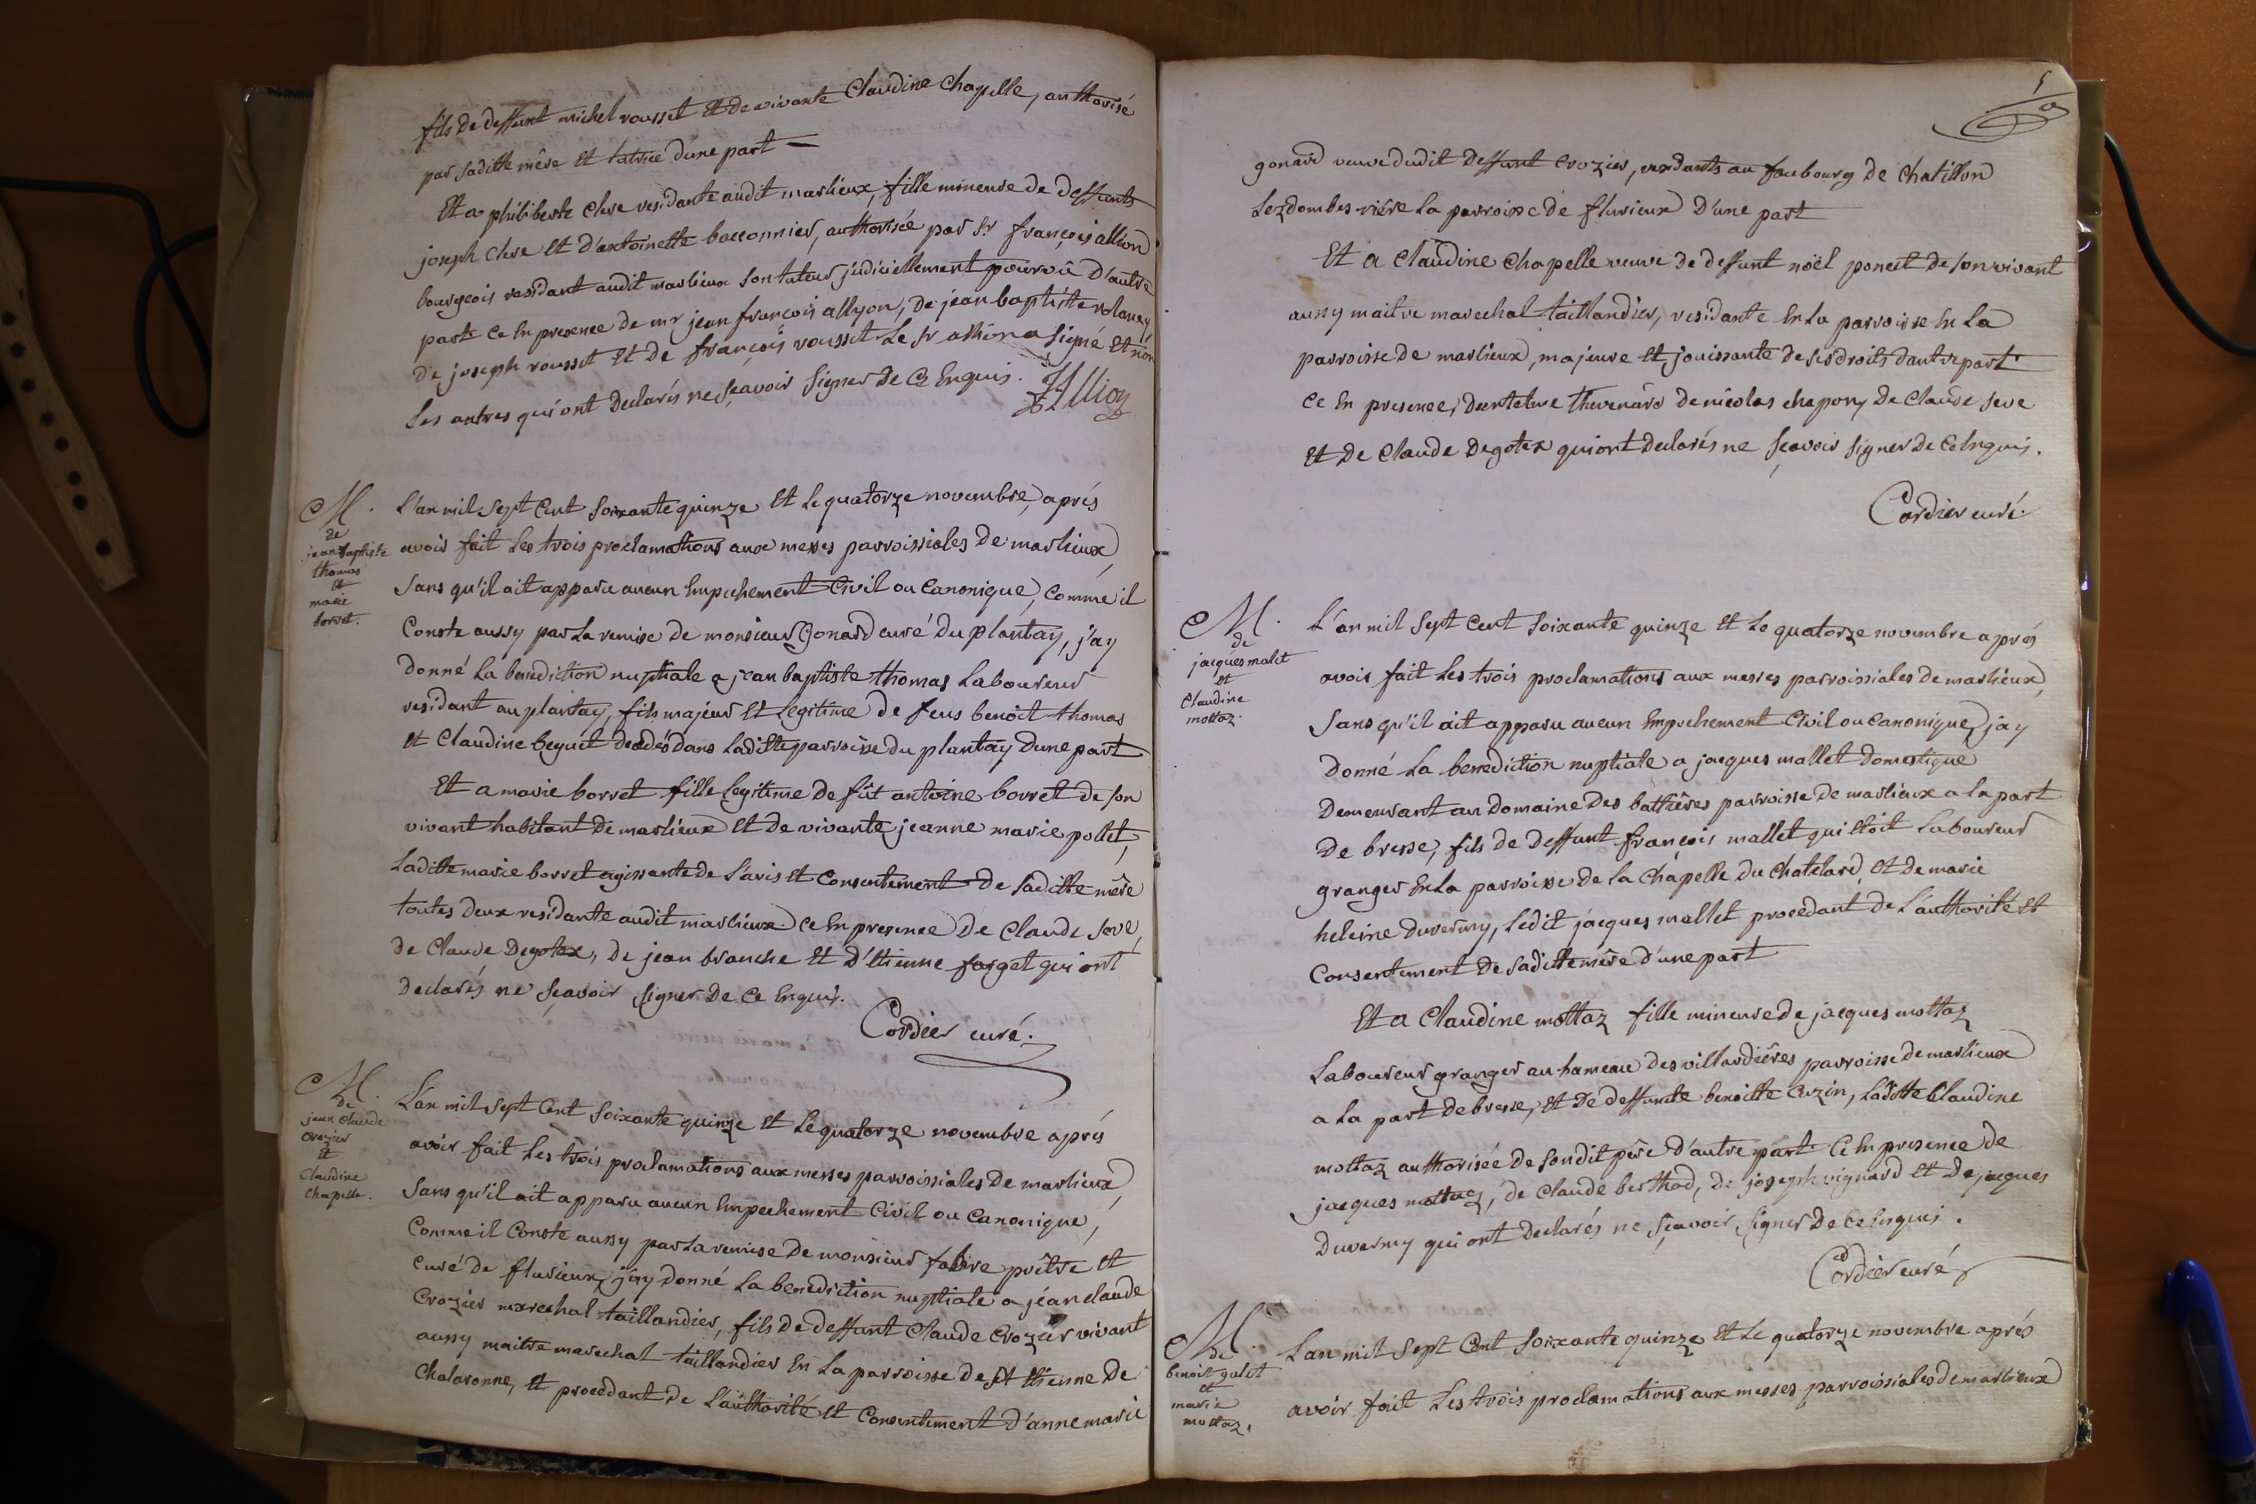 fils de deffunt michel rousset et de vivante Claudine Chapelle, authorisé
par saditte mêre et tutrice d'une part
Et a philiberte Clere residante audit marlieux, fille mineure de deffunts
joseph Clere et d'antoinette bacconnier, authorisée par Sr françois allion
bourgeois residant audit marlieux son tuteur judiciellement pourvû d'autre
part ce En presence de mr jean françois allyon, de jean baptiste
de joseph rousset et de françois rousset Le Sr allion a signé et non
Les autres qui ont declarés ne sçavoir signer de ce Enquis.
Allion
M.
de
jean baptiste
thomas
et
marie
borret.
L'an mil sept Cent soixante quinze et le quatorze novembre, aprés
avoir fait les trois proclamations aux messes parroissiales de marlieux,
sans qu'il ait apparu aucun Empechement Civil ou Canonique, comme il
Conste aussy par la remise de monsieur Gonard curé du plantay, j'ay
donné la benediction nuptiale a jean baptiste thomas Laboureur
residant au plantay, fils majeur et Legitime de feus benoit thomas
et Claudine beguet decedés dans laditte parroisse du plantay d'une part
Et a marie borret fille Legitime de fût antoine borret de son
vivant habitant de marlieux et de vivante jeanne marie pollet,
Laditte marie borret agissante de l'avis et Consentement de saditte mêre
toutes deux residante audit marlieux ce En presence de Claude seve,
de Claude Degotex, de jean branche et d'Etienne farget qui ont
declarés ne sçavoir signer de ce Enquis.
Cordier curé.
M.
de
jean Claude
Crozier
et
Claudine
Chapelle.
L'an mil sept Cent soixante quinze et le quatorze novembre aprés
avoir fait les trois proclamations aux messes parroissiales de marlieux,
sans qu'il ait apparu aucun Empechement Civil ou Canonique,
Comme il Conste aussy par la remise de monsieur fabre prêtre et
curé de flurieux, j'ay donné la benediction nuptiale a jean claude
Crozier marechal taillandier, fils de deffunt Claude Crozier vivant
aussy maitre marechal taillandier En la parroisse de st Etienne de
Chalaronne, et procedant de l'authorité et Consentement d'anne marie
gonard veuve dudit deffunt Crozier, residants au faubourg de Chatillon
Lez dombes riére la parroisse de flurieux d'une part
Et a Claudine Chapelle veuve de deffunt noël poncet de son vivant
aussy maitre marechal taillandier, residante En la parroisse En la
parroisse de marlieux, majeure et jouissante de ses droits d'autre part
ce En presence, thevenard de nicolas chapon, de Claude seve
et de Claude Degotex qui ont declarés ne sçavoir signer de ce Enquis.
Cordier curé.
M.
de
jacques malet
et
Claudine
mottaz.
L'an mil sept Cent soixante quinze et le quatorze novembre aprés
avoir fait les trois proclamations aux messes parroissiales de marlieux,
sans qu'il ait apparu aucun Empechement Civil ou Canonique, j'ay
donné la benediction nuptiale a jacques mallet domestique
demeurant au domaine des bathiêres parroisse de marlieux a la part
de bresse, fils de deffunt françois mallet qui étoit laboureur
granger En la parroisse de la Chapelle du Chatelard et de marie
heleine duverny, ledit jacques mallet procedant de l'authorité et
Consentement de saditte mêre d'une part
Et a Claudine mottaz fille mineure de jacques mottaz
Laboureur granger au hameau des villardiéres parroisse de marlieux
a la part de bresse, et de deffunte benoitte Cuzin, laditte Claudine
mottaz authorisée de sondit pêre d'autre part ce En presence de
jacques mottaz, de Claude berthod, de joseph vignard et de jacques
Duverny qui ont declarés ne sçavoir signer de ce Enquis.
Cordier curé
M.
de
benoit galet
et
marie
mottaz.
L'an mil sept Cent soixante quinze et le quatorze novembre aprés
avoir fait les trois proclamations aux messes parroissiales de marlieux